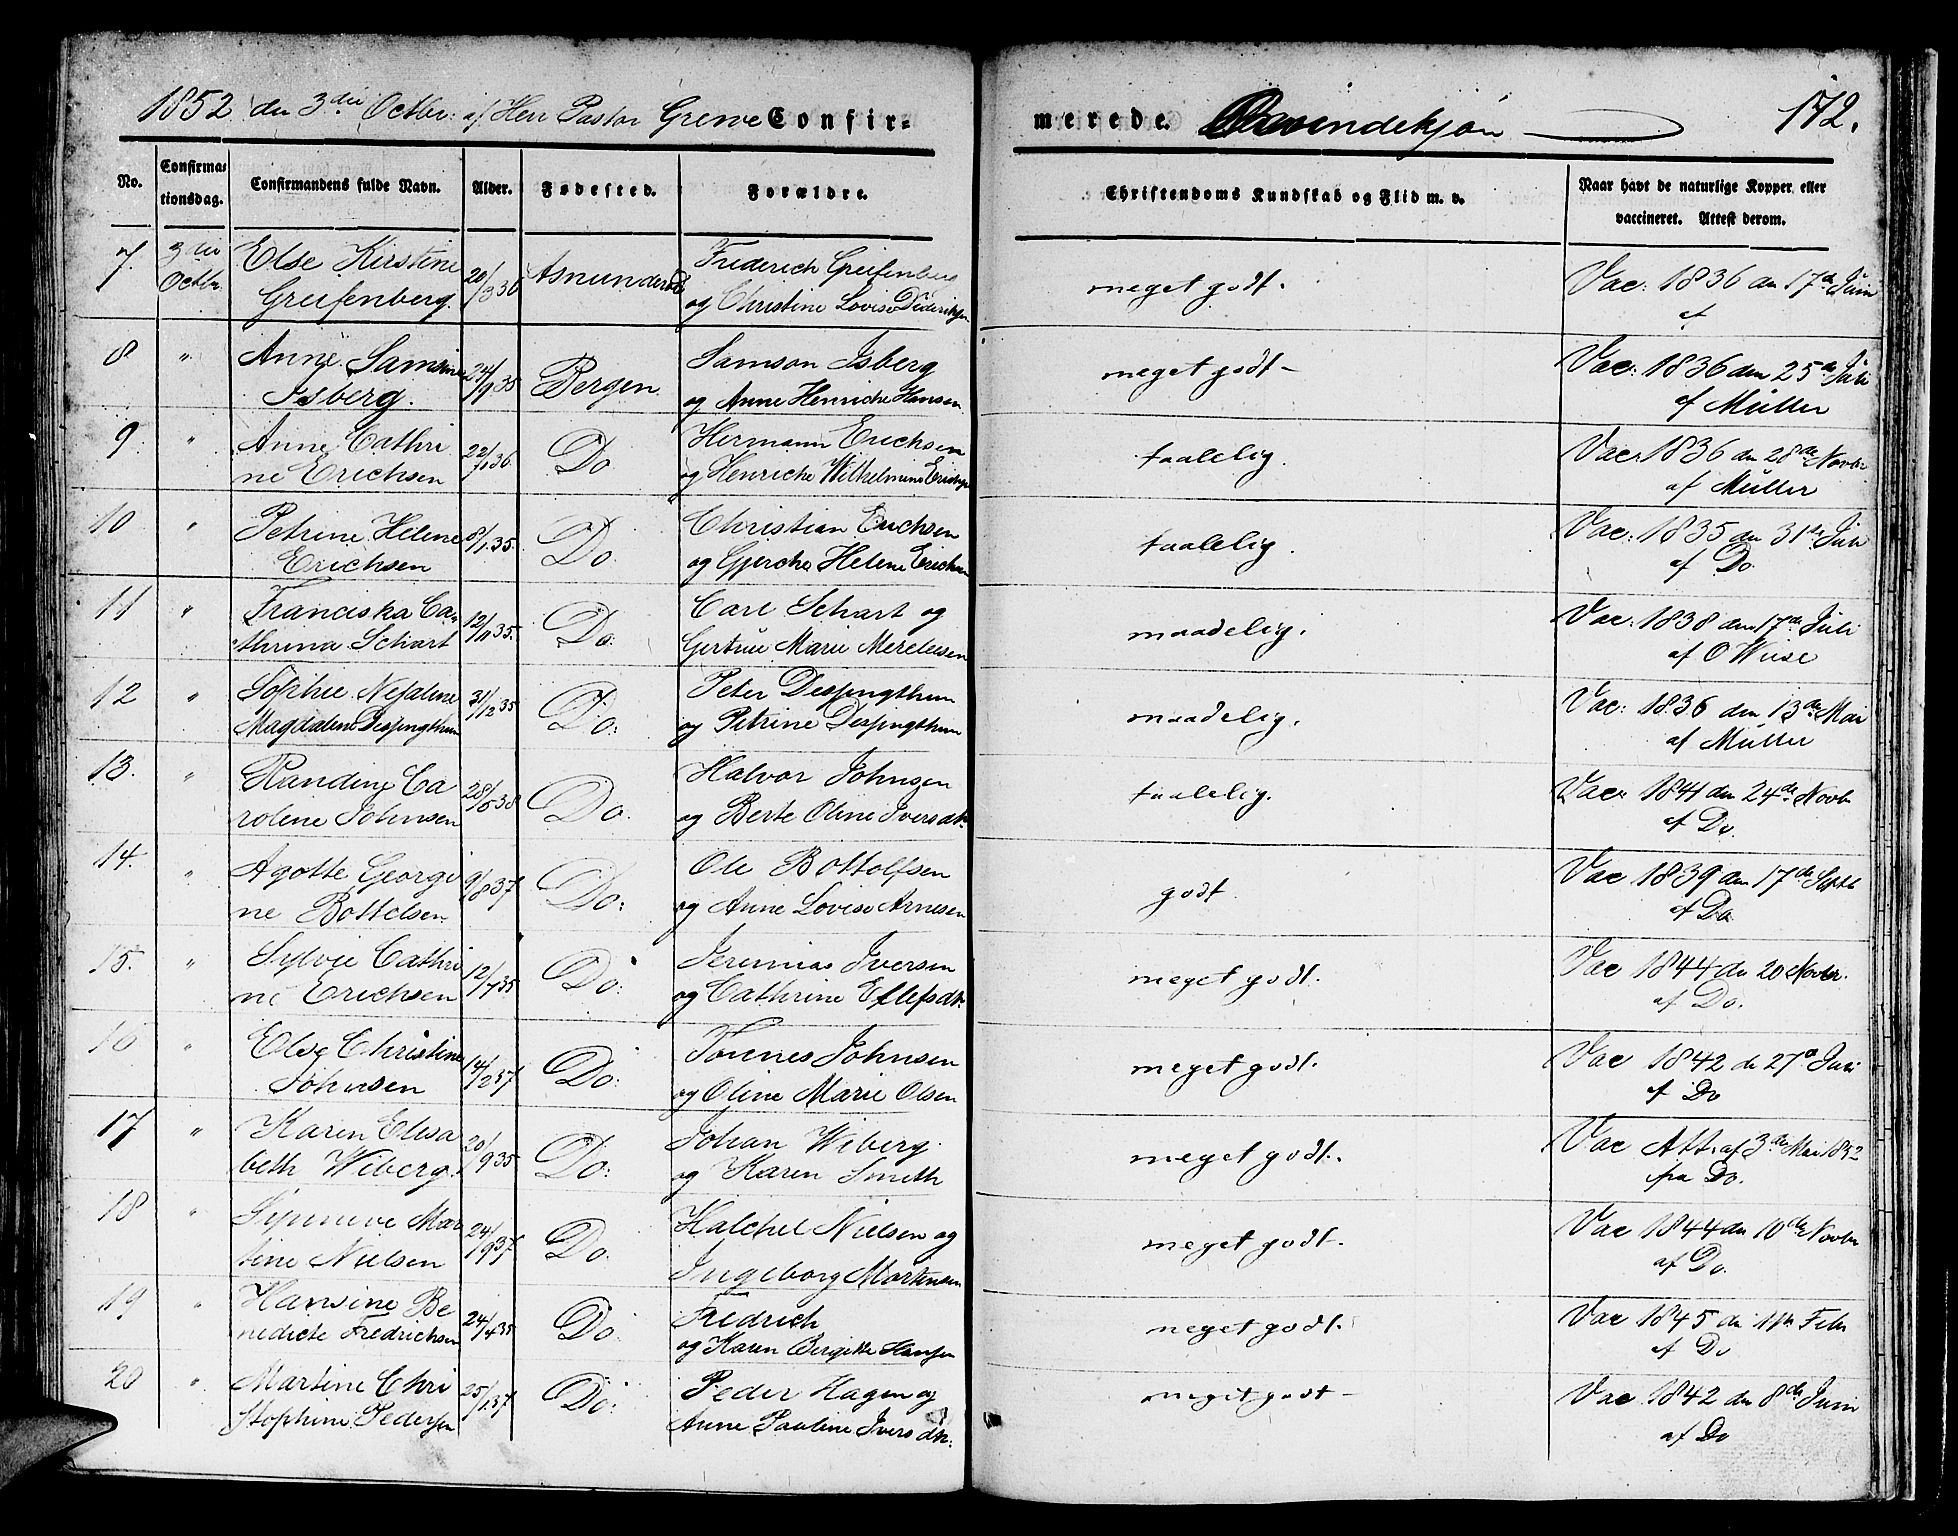 1852 den 3die Octbr: af Herr Pastor Greve Confir-
merede. Qvindekjøn 172.
No. Confirma- Confirmandens fulde Navn. Alder. Fødested. Forældre. Christendoms Kundskab og Flid m. v. Naar havt de naturlige Kopper, eller
tionsdag. vaccineret. Attest derom.
7. 3die Else Kirstine 20/3 36 Frederich Greifenberg meget godt. Vac: 1836 den 17de Juni
Octbr. Greifenberg. og Christine Lovise Dideriksen af
8 " Anne Samsine 24/9 35 Bergen Samson Isberg meget godt - Vac: 1836 den 25de Juli
Isberg. og Anne Henriche Hansen af Müller
9. " Anne Cathri 36 Do Hermann Erichsen taalelig. Vac 1836 den 28de Novbr
ne Erichsen og Henriche Wilhelmine Erichsen af Müller
10 " Petrine Helene 8/1 35. Do. Christian Erichsen taalelig. Vac: 1835 den 31te Juli
Erichsen og Helene Erichsen af Do
11 " Franciska Ca- 12/11 35. Do: Carl Schart og maadelig. Vac: 1838 den 17de Juli
thrina Schart Marie af O Wiese
12 " Sophie 31/12 35 Do: Peter maadelig. Vac: 1836 den 13de Mai
Magdalene og Petrine af Müller
13. " Randine Ca 28/5 38 Do. Halvor Johnsen taalelig. Vac 1841 den 24de Novbr
roline Johnsen og Berte Oline Iversdtr. af Do.
14. " Agotte Georgi 9/8 37 Do: Ole Bottolfsen godt Vac 1839 den 17de Septb
ne Bottelsen og Anne Lovise Arnesen af Do
15. " Sylvie Cathri 12/4 35 Do: Jeremias Iversen meget godt. Vac 1844 den 20 Novbr.
ne Erichsen og Cathrine af Do.
16 " Else Christine 14/2 37 Do: Tønnes Johnsen meget godt. Vac 1842 d 27d Juni
Johnsen og Oline Marie Olsen af Do
17 " Karen Elisa 20/9 35 Do: Johan Wiberg. meget godt. Vac Att. af 3de Mai 1852
beth Wiberg. og Karen Smith fra Do.
18 " Mar 24/9 37 Do. Nielsen og meget godt. Vac 1844 den 10de Novbr
tine Nielsen Ingeborg Martinsen af Do
19 " Hansine Be 24/4 35 Do Fredrich meget godt. Vac 1845 den 11te Febr
nedicte Fredrichsen og Karen Birgitte Hansen af Do
20 " Martine Chri 25/1 37 Do: Peder Hagen og meget godt - Vac. 1842 den 8de Juni
stophine Pedersen Anne Pauline Iversdtr: af Do